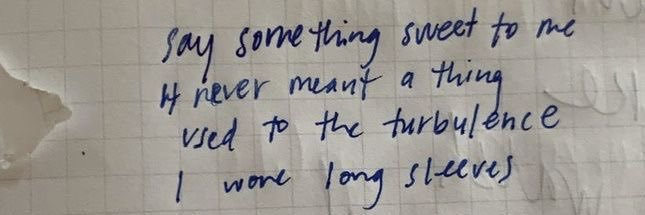 say something sweet to me
It never meant a thing
used to the turbulence
I wore long sleeves